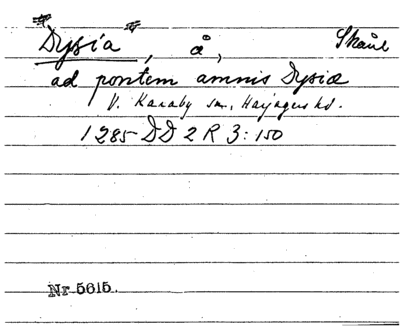 "Dysia", å, Skåne
ad pontem amnis Dysiæ
V. Karaby sn., Harjagers hd.
1285 DD 2 R 3:150
Nr 5615.